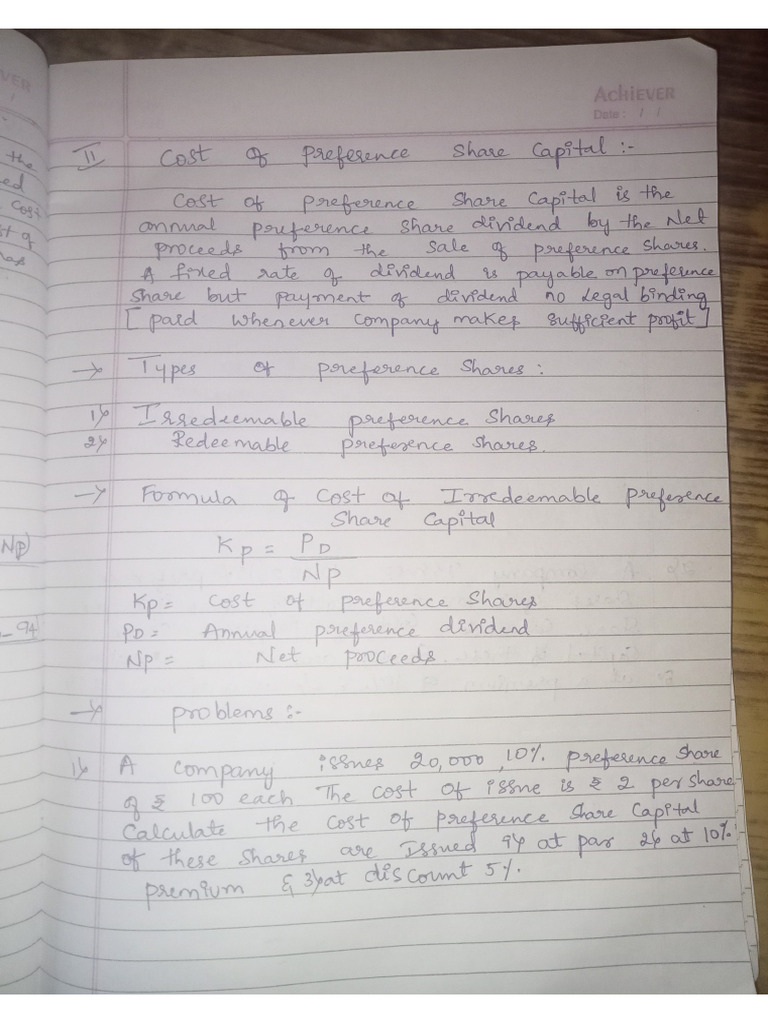 VER
/
the
ed
Cost
st of
has
Np)
AchiEVER
Date: / /
II Cost of Preference Share Capital :-
Cost of preference Share Capital is the
annual preference share dividend by the Net
proceeds from the sale of preference shares.
A fixed rate of dividend is payable on preference
share but payment of dividend no legal binding
[ paid whenever company makes sufficient profit ]
→ Types of preference Shares :
1) Irredeemable preference Shares
2) Redeemable preference shares.
→ Formula of Cost of Irredeemable preference
Share Capital
Kp = PD
NP
Kp = Cost of preference Shares
PD = Annual preference dividend
Np = Net proceeds.
→ problems :-
1) A company issues 20,000, 10% preference Share
of ₹ 100 each The cost of issue is ₹ 2 per share
Calculate the cost of preference Share Capital
of these shares are Issued 1) at par 2) at 10%
premium & 3) at discount 5%.